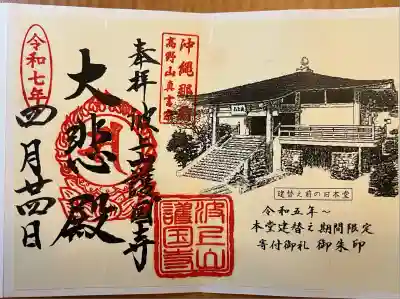 沖縄那覇
高野山真言宗
奉拝 波上護国寺
大悲殿
令和七年
四月廿四日
波上山
護国寺
建替え前の旧本堂
令和五年～
本堂建替え期間限定
寄付御礼 御朱印